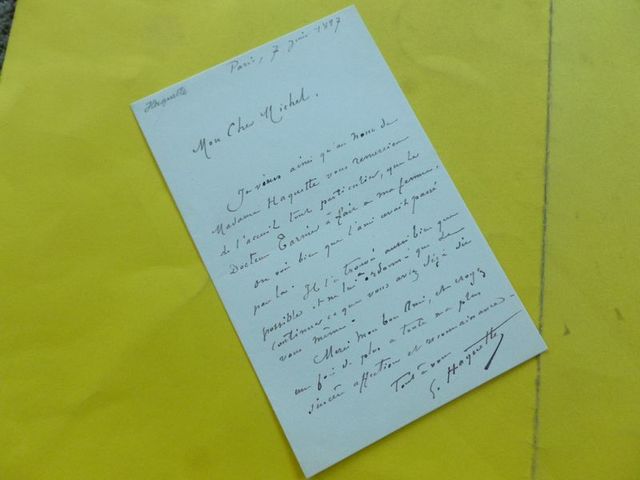 Haquette
Paris, 7 Juin 1897
Mon Cher Michel.
Je viens ainsi qu'au nom de
Madame Haquette vous remercier
de l'accueil tout particulier, que le
Docteur Tarnier à fait à ma femme,
on voit bien que l'ami avait passé
par là. Il l'a trouvé aussi bien que
possible et ne lui a ordonné que de
continuer ce que vous aviez déjà dit
vous même.
Merci mon bon Ami, et croyez
une fois de plus a toute ma plus
sincère affection et reconnaissance.
Tout à vous
G. Haquette